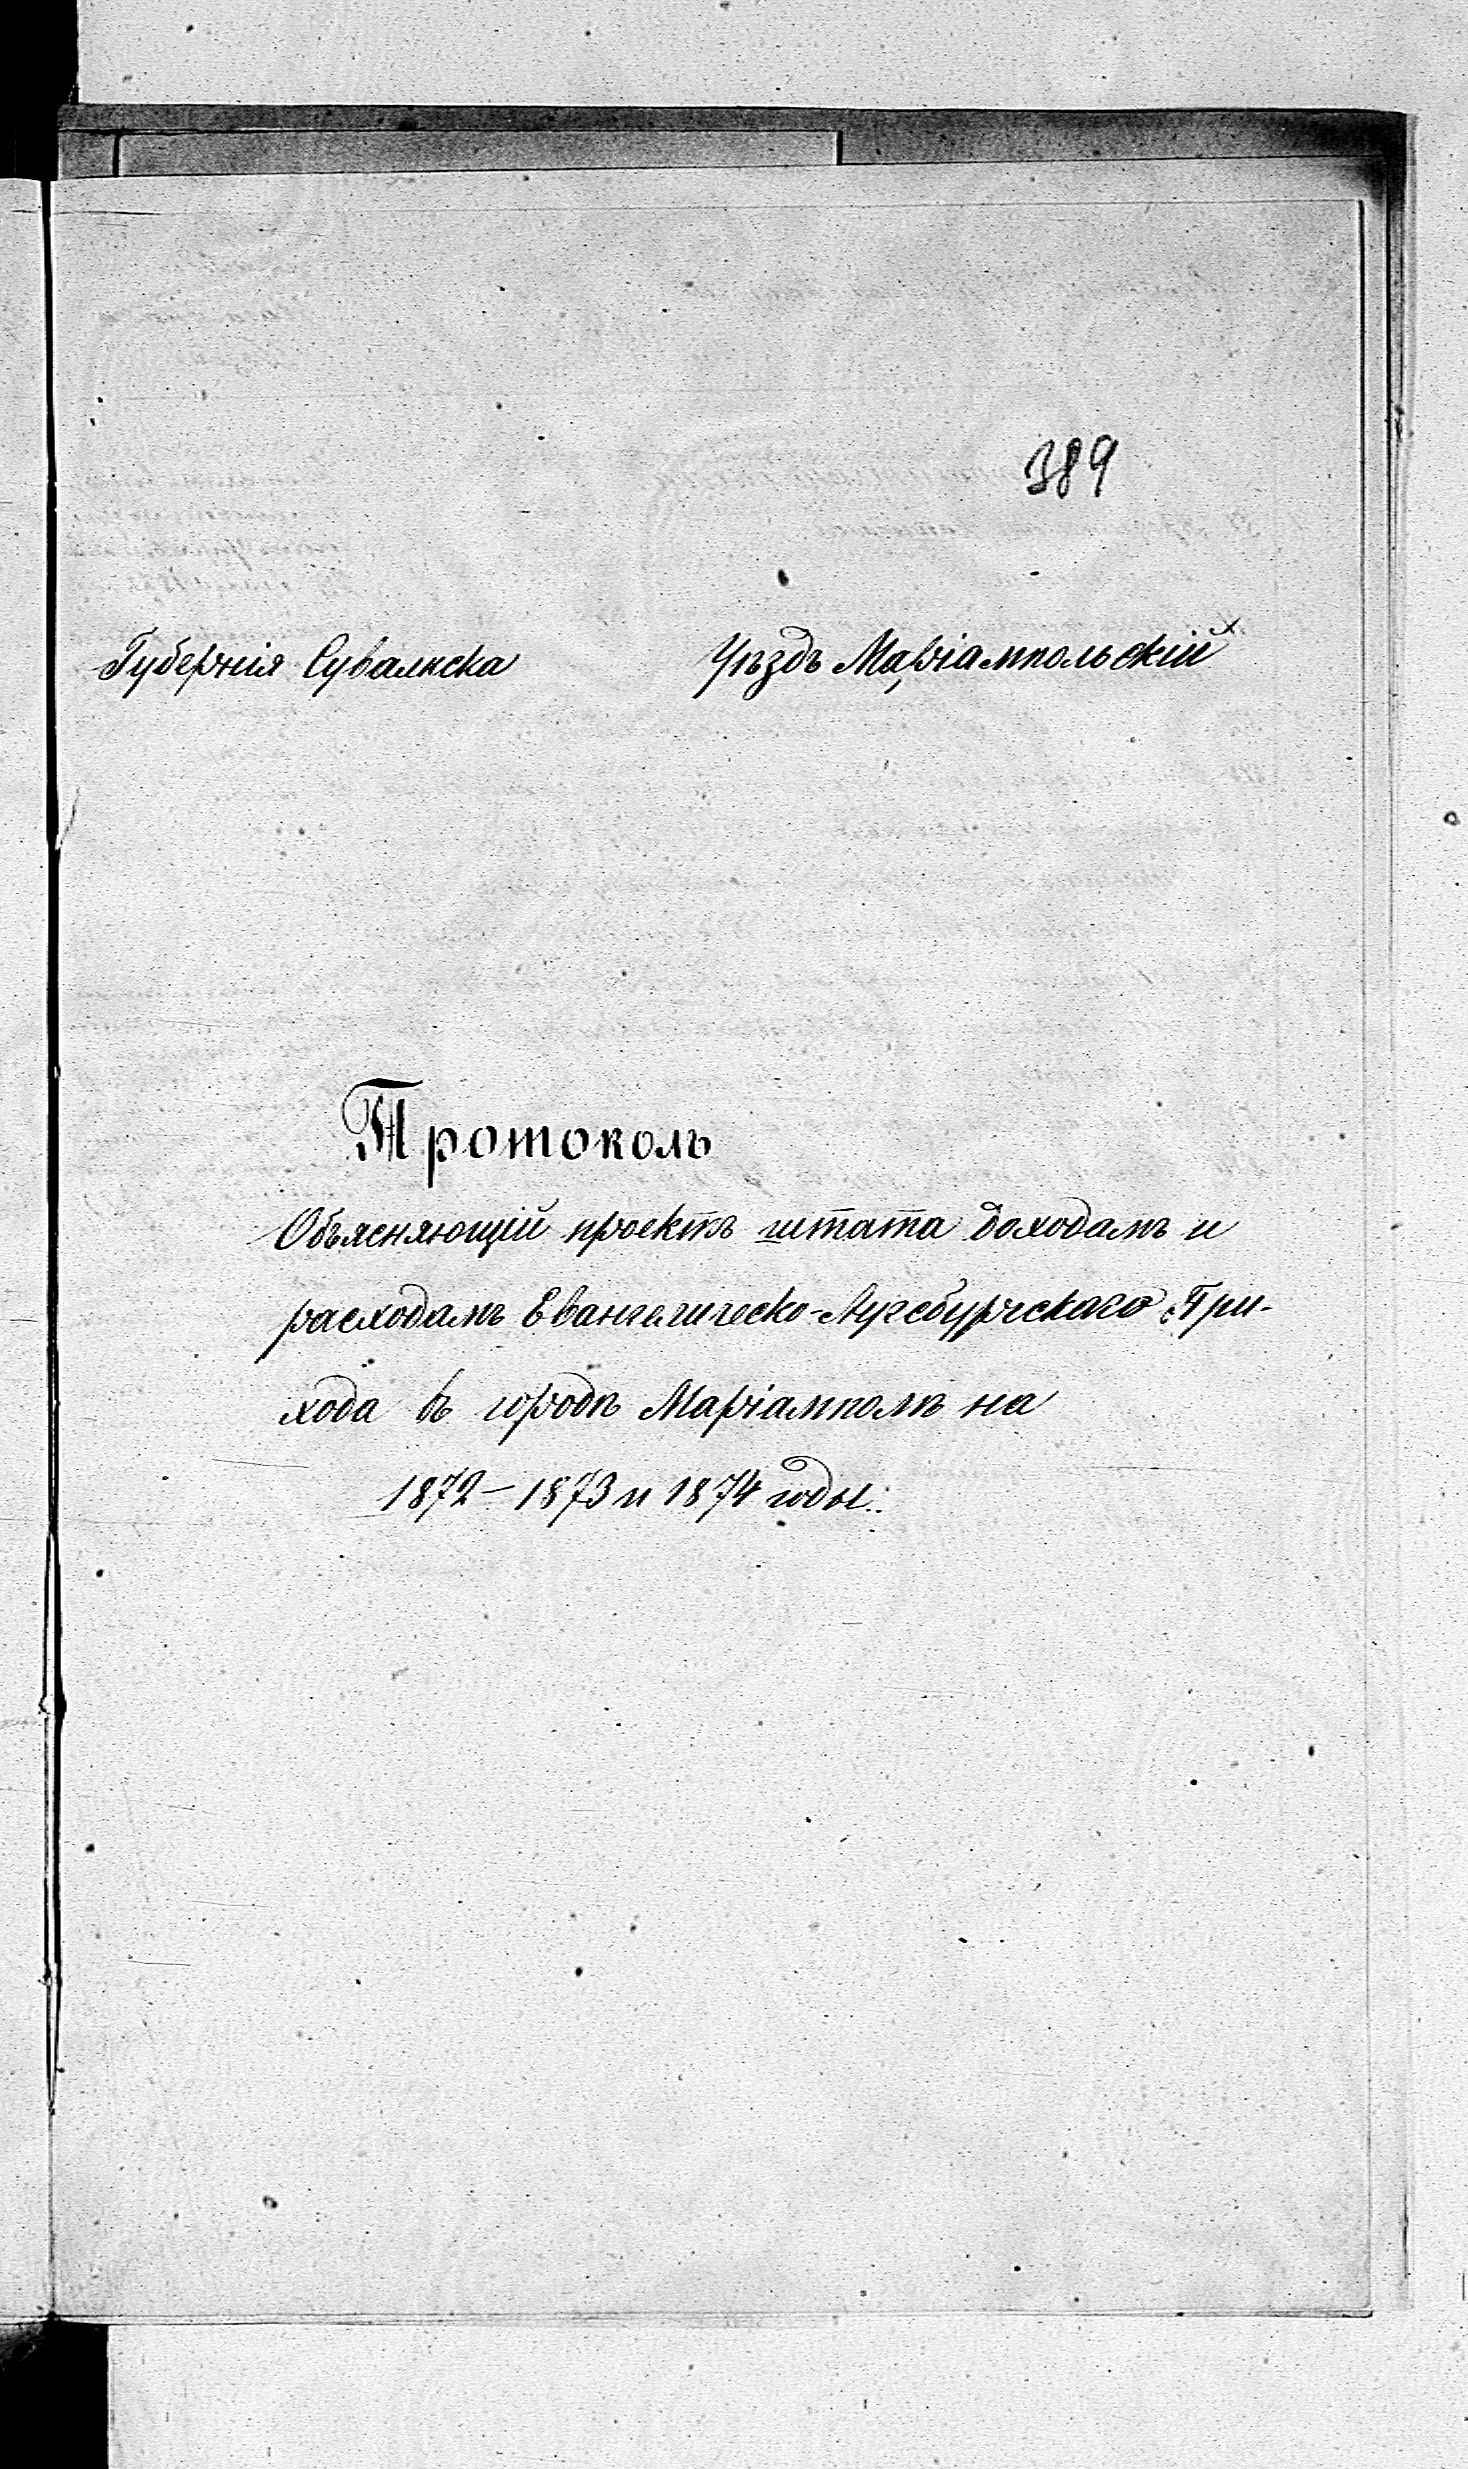 389
Губернія Сувалкска Уѣздъ Маріампольскій
Протоколъ
Объясняющій проектъ штата доходамъ и
расходамъ Евангелическо-Аугсбургскаго При-
хода въ городѣ Маріамполѣ на
1872 – 1873 и 1874 годы.